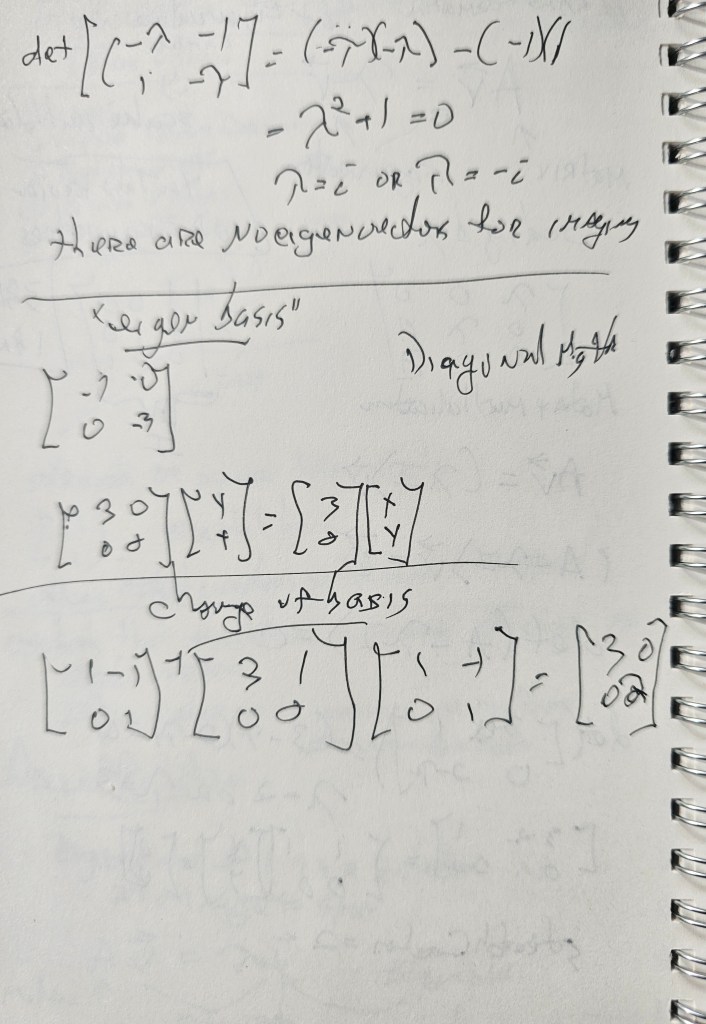 det [(-λ -1 1 -λ] = (-λ)(-λ) - (-1)(1
= λ² + 1 = 0
λ = i OR λ = -i
there are no eigenvectors for
"eigen basis"
Diagonal
[-1 0 0 -3]
[3 0 0 2] [x y] = [3 2] [x y]
change of basis
[1 -1 0 1]⁻¹ [3 1 0 2] [1 -1 0 1] = [3 0 0 2]